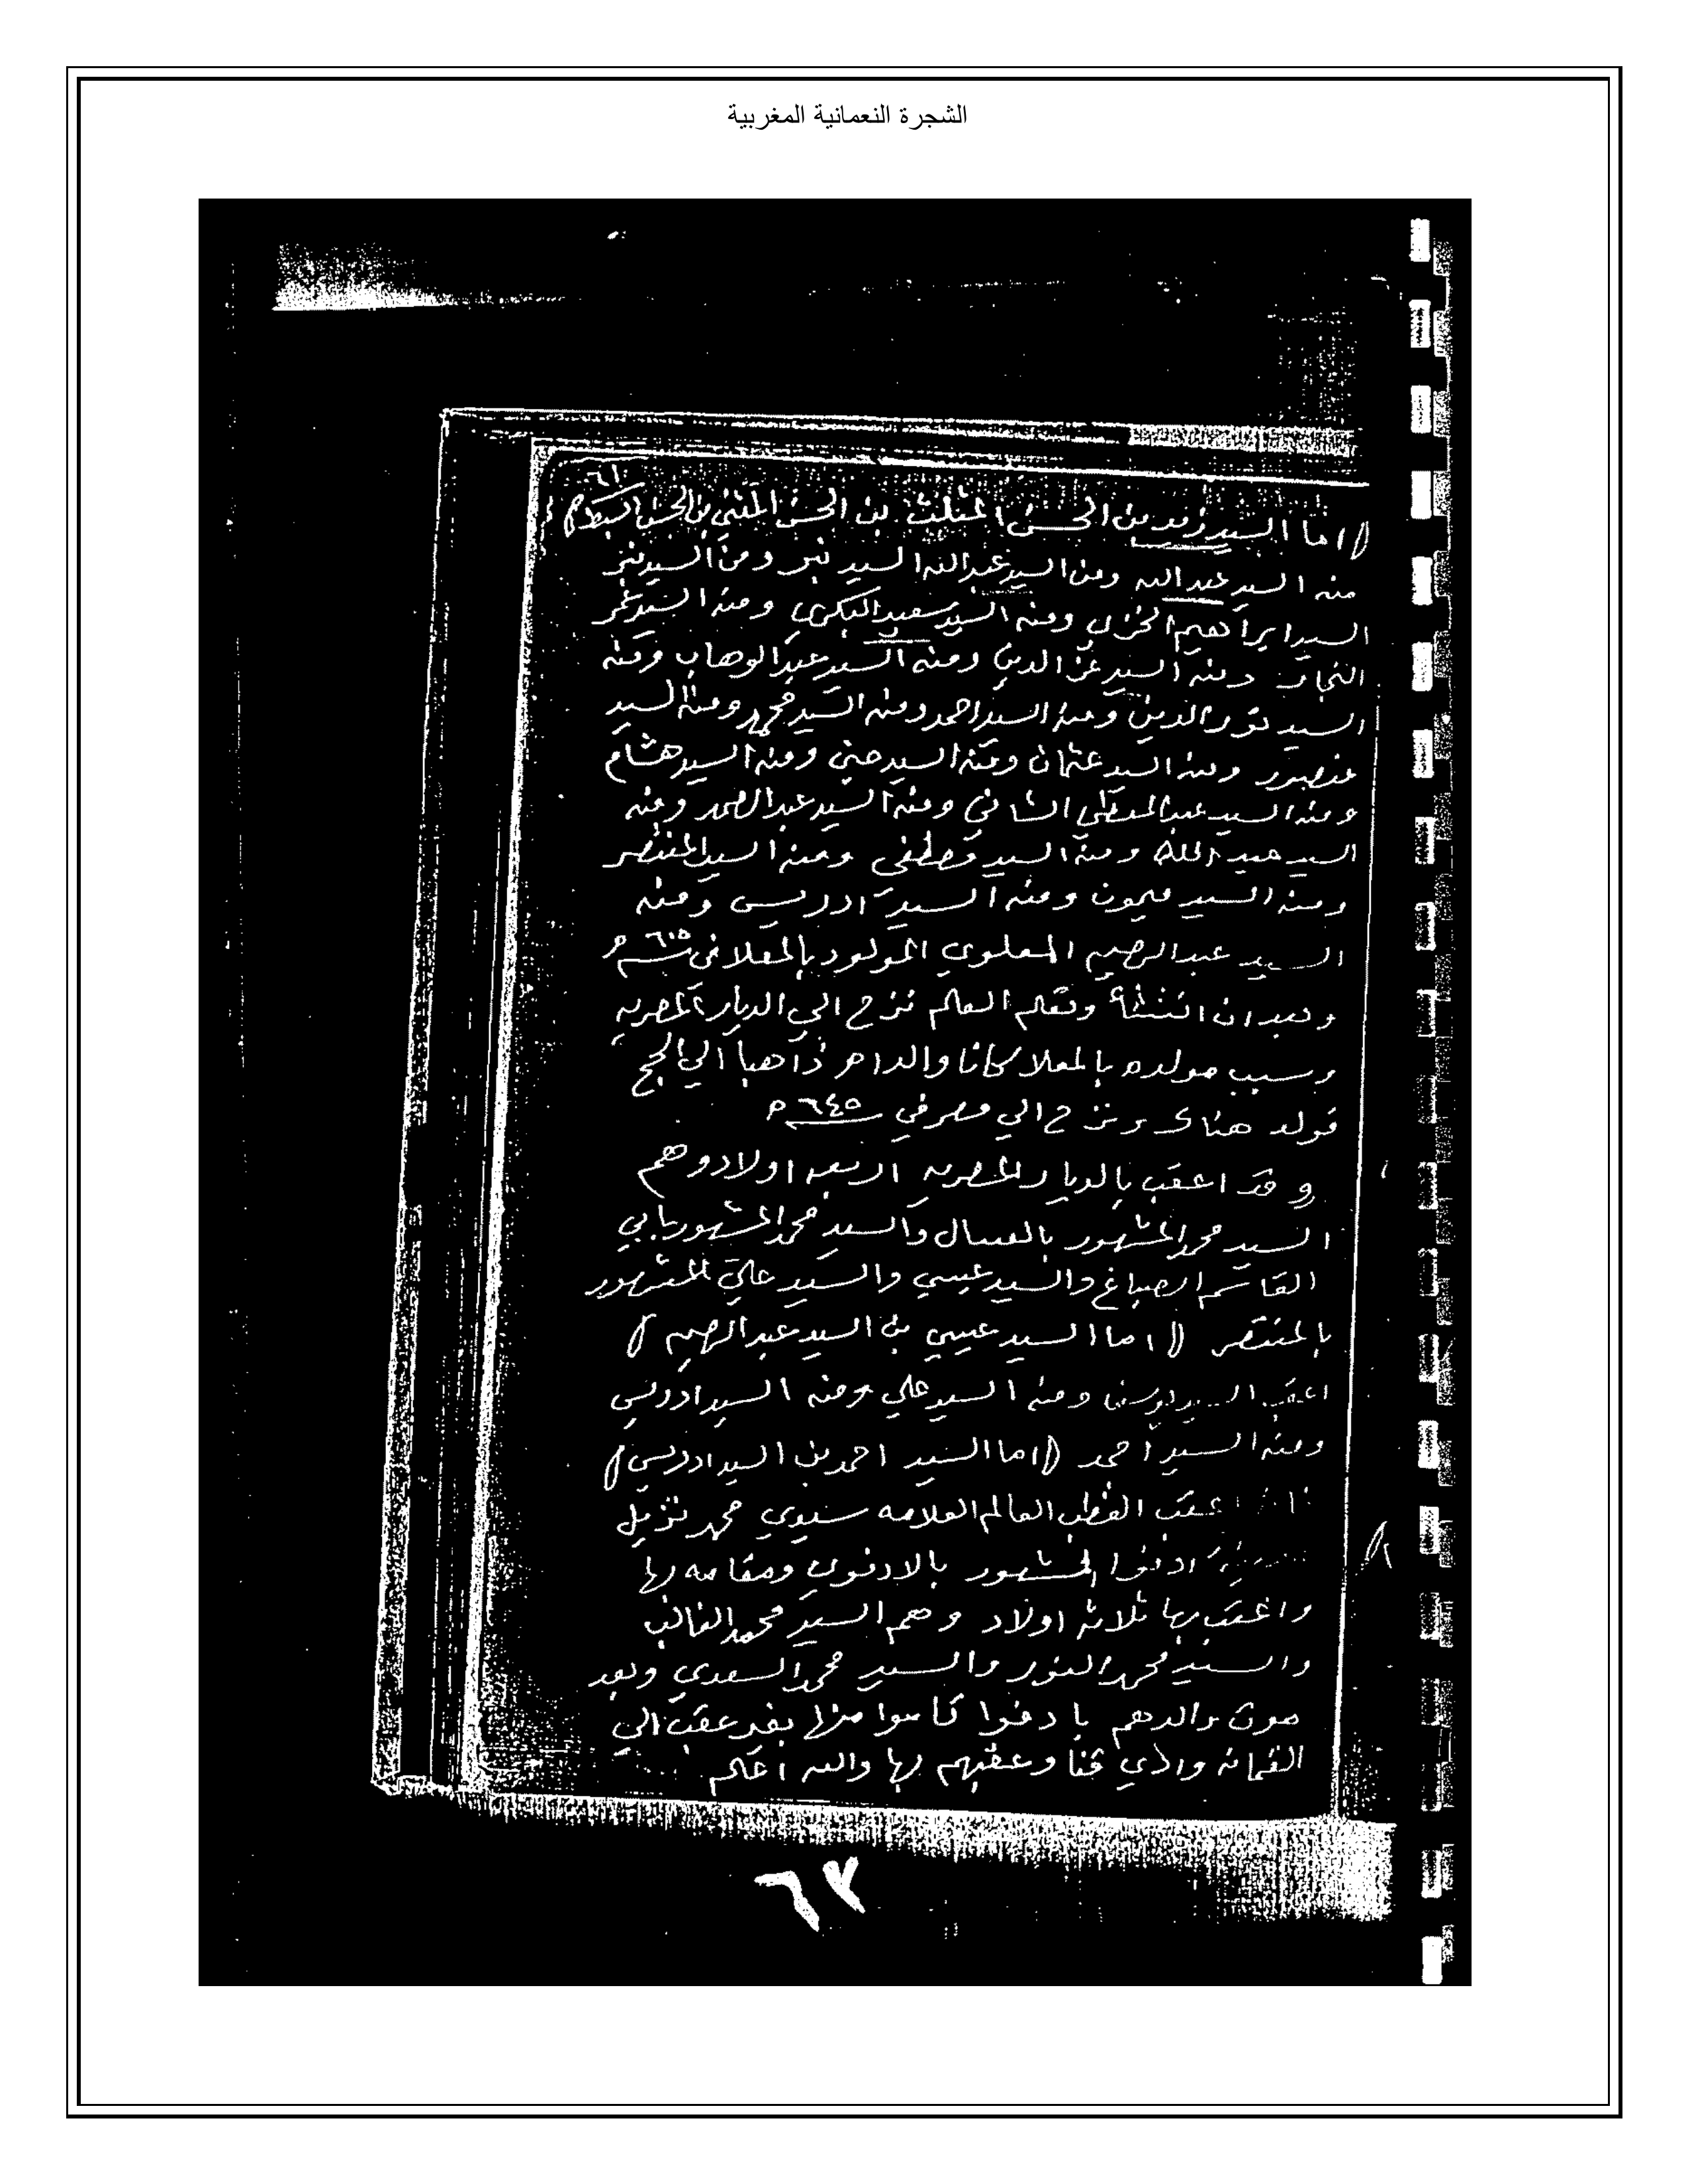 الشجرة النعمانية المغربية
٦١
( اما السيد زيد بن الحسن المثلث بن الحسن المثني بن الحسن السبط )
منه السيد عبد الله ومن السيد عبد الله السيد ومن السيد
السيد ابراهيم ومنه السيد سعيد البكري ومنه السيد عمر
ومنه السيد عز الدين ومنه السيد عبد الوهاب ومنه
السيد نور الدين ومنه السيد احمد ومنه السيد محمد ومنه السيد
منصور ومنه السيد عثمان ومنه السيد ومنه السيد هشام
ومنه السيد عبد المعطي الشاني ومنه السيد عبد الصمد ومنه
السيد عبد الملك ومنه السيد مصطفى ومنه السيد المنتصر
ومنه السيد ميمون ومنه السيد ادريس ومنه
السيد عبد الرحيم المعلوي المولود بالمعلا في سنة ٦١٥ هـ
وبعد ان انتشأ وتعلم العلم نزح الي الديار المصريه
وسبب مولده بالمعلا كانا والداه ذاهبا الي الحج
فولد هناك ونزح الي مصر في سنة ٦٤٥ ه
وقد اعقب بالديار المصريه اربعه اولاد وهم
السيد محمد المشهور بالعسال والسيد محمد المشهور بابي
القاسم الصباغ والسيد عيسي والسيد علي المشهور
بالمنتصر ( اما السيد عيسي بن السيد عبد الرحيم )
اعقب السيد يوسف ومنه السيد علي ومنه السيد ادريس
ومنه السيد احمد ( اما السيد احمد بن السيد ادريس )
اعقب القطب العالم العلامه سيدي محمد نزيل
ادفوا المشهور بالادفوي ومقامه بها
واعقب بها ثلاثه اولاد وهم السيد محمد الغالب
والسيد محمد النور والسيد محمد السعدي وبعد
موت والدهم بادفوا قاموا منها بغير عقب الي
القمانه وادي قنا وعقبهم بها والله اعلم
٦٢